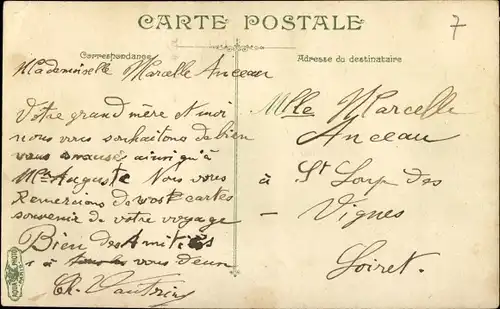 CARTE POSTALE
7
Correspondance
Adresse du destinataire
Mademoiselle Marcelle Anceau
Votre grand mère & moi
nous vous souhaitons de bien
vous amusés ainsi qu'à
Auguste Nous vous
Remercions de vos cartes
souvenir de votre voyage
Bien des Amitiés
à vous deux
Mlle Marcelle
Anceau
à St Loup des
Vignes
Loiret.